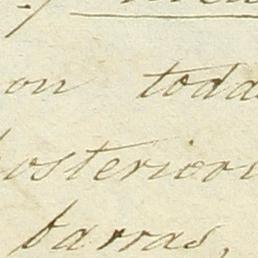 on toda
osterior
barras,